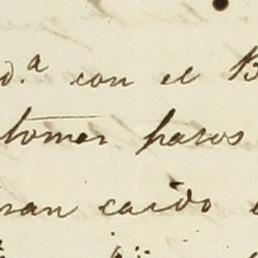 d.ª con el B
tomar pasos
ran caido